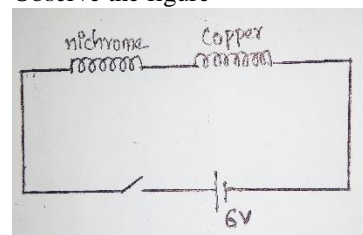 Observe the figure
nichrome
Copper
6V